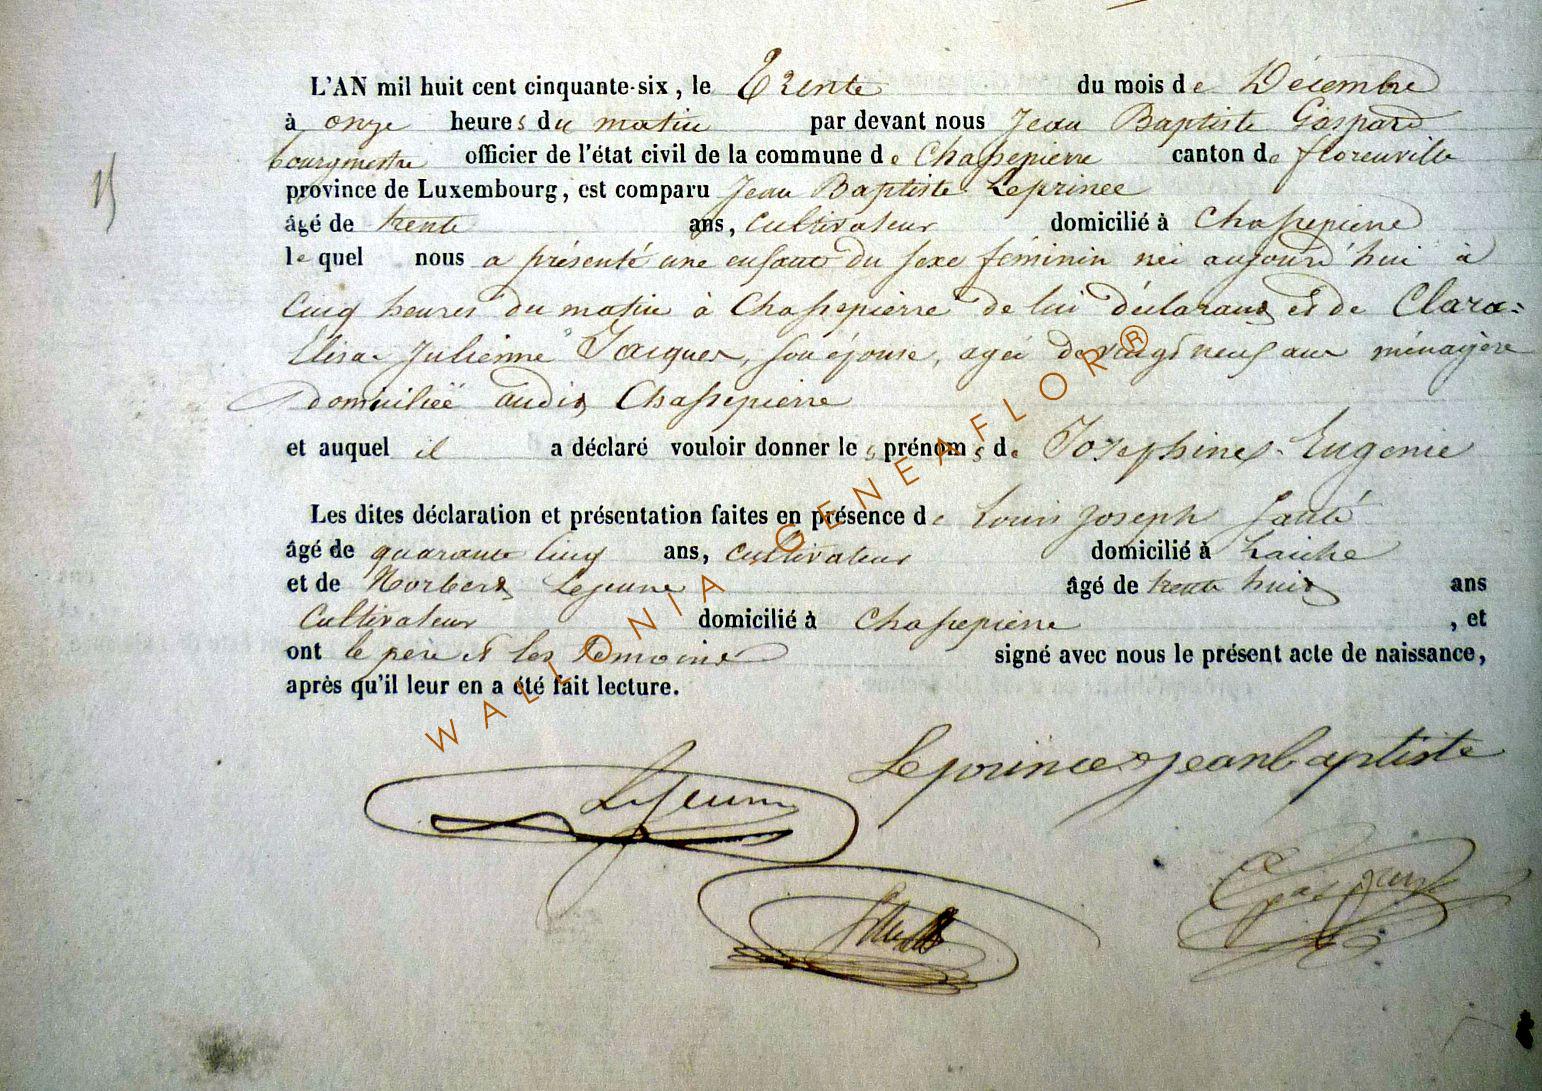 L'AN mil huit cent cinquante-six, le Trente du mois de Décembre
à onze heures du matin par devant nous Jean Baptiste Gaspard
bourgmestre officier de l'état civil de la commune de Chassepierre canton de florenville
province de Luxembourg, est comparu Jean Baptiste Leprince
âgé de trente ans, cultivateur domicilié à Chassepierre
le quel nous a présenté une enfant du sexe féminin née aujourd'hui à
Cinq heures du matin à Chassepierre de lui déclarant et de Clara=
Elisa Julienne Jacques, son épouse, agée de vingt neuf ans ménagère
domiciliée audit Chassepierre
et auquel il a déclaré vouloir donner les prénoms de Josephine Eugenie
Les dites déclaration et présentation faites en présence de Louis Joseph
âgé de quarante Cinq ans, cultivateur domicilié à Laiche
et de Norbert Lejeune âgé de trente huit ans
Cultivateur domicilié à Chassepierre, et
ont le père et les temoins signé avec nous le présent acte de naissance,
après qu'il leur en a été fait lecture.
WALLONIA GENEAFLOR®
Leprince jeanbaptiste
Lejeune
Gaspard